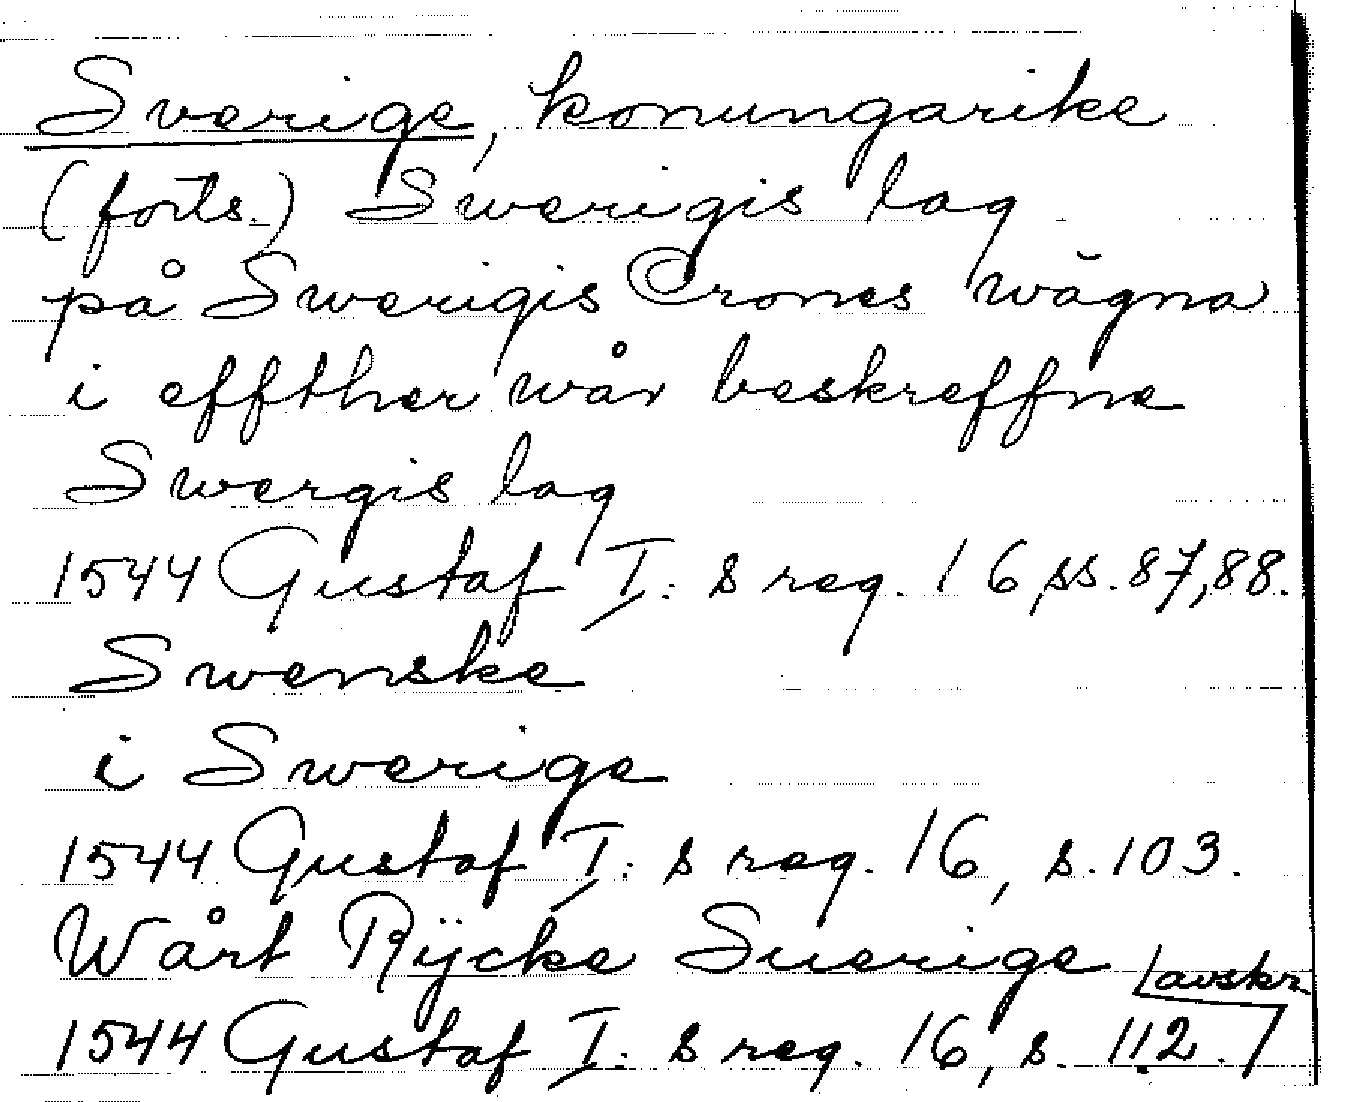 Sverige, konungarike
(forts.) Swerigis lag
på Swerigis Crones wägna
i effther wår beskreffne
Swergis lag
1544 Gustaf I:s reg. 16 ss. 87, 88.
Swenske
i Swerige
1544 Gustaf I:s reg. 16, s. 103.
Wårt Rÿcke Suerige [avskr.
1544 Gustaf I:s reg. 16, s. 112.]